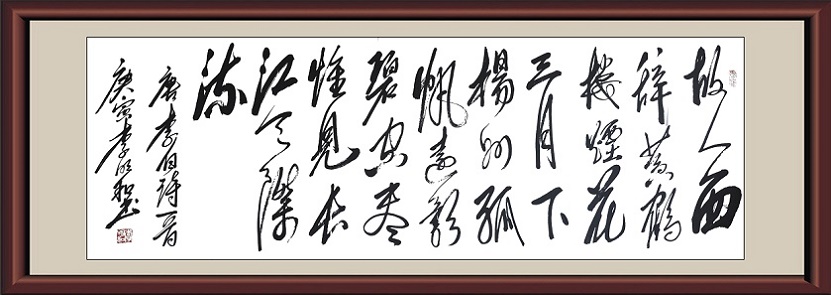 故人西
辞黄鶴
樓煙花
三月下
楊州孤
帆遠影
碧空盡
惟見長
江天際
流
唐李白詩一首
庚寅李明